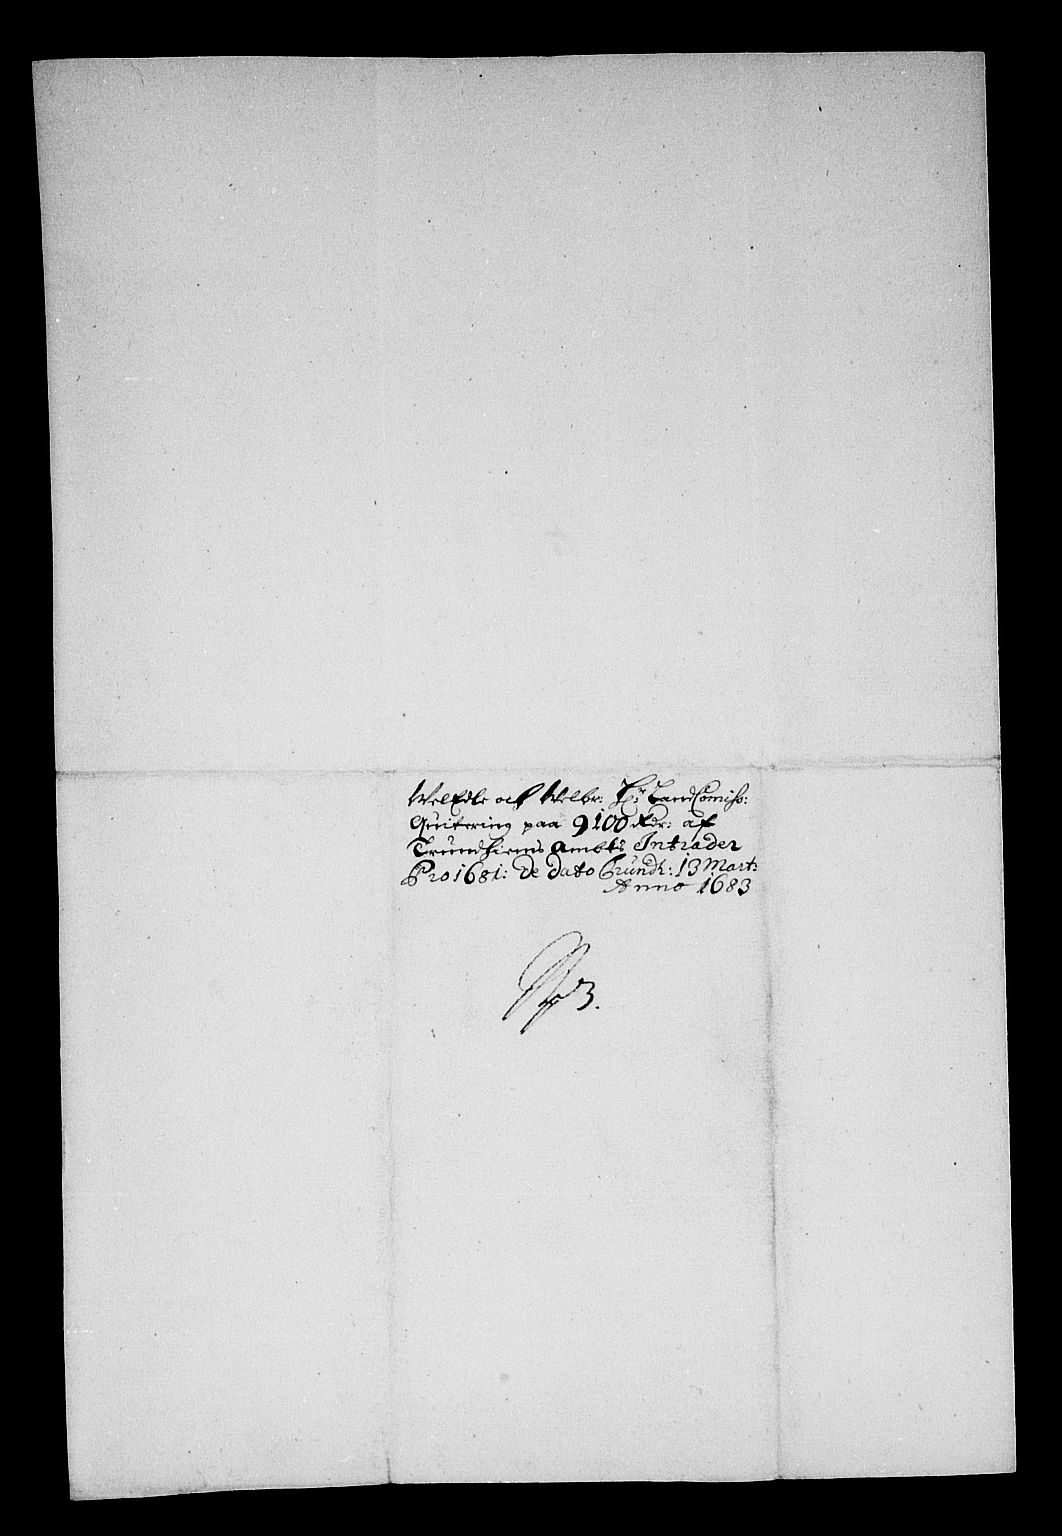 WelEdle och Welbr: Hr: LandComiss:
Quitering paa 9100 Rdr: af
Trundhiems Ambts Intrader
Pro 1681: de dato Trundh: 13 Marti
Anno 1683